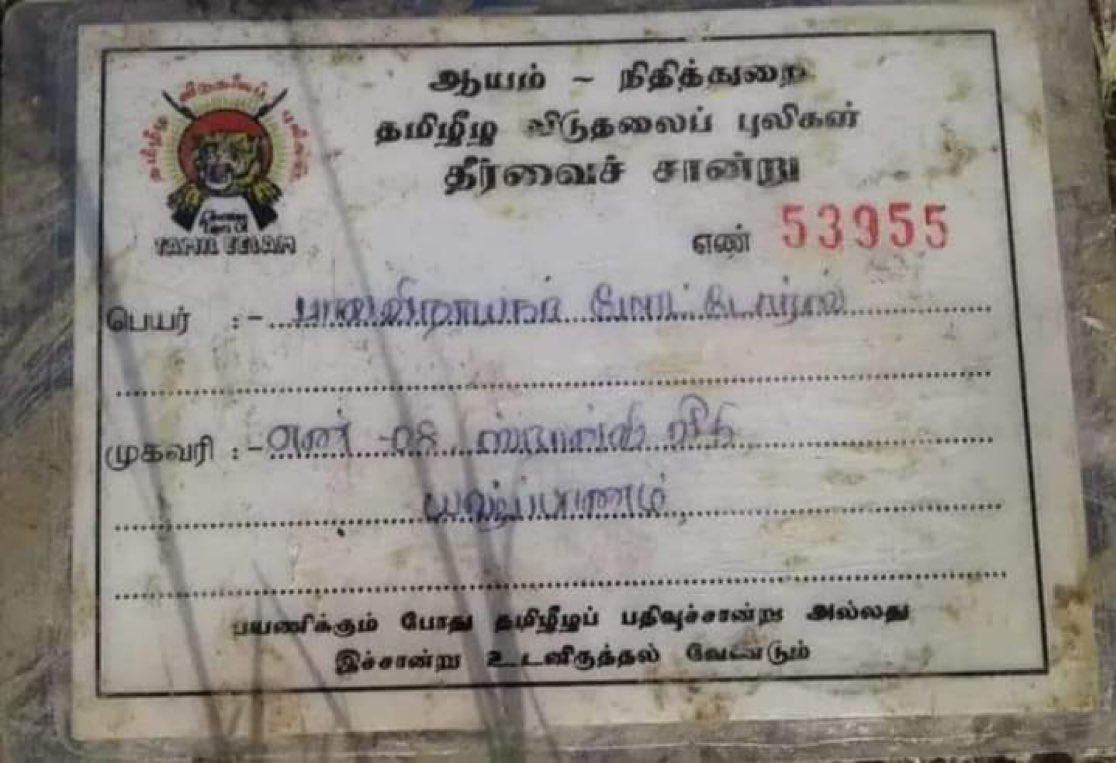 தமிழீழ விடுதலைப் புலிகள்
TAMIL EELAM
ஆயம் ~ நிதித்துறை
தமிழீழ விடுதலைப் புலிகள்
தீர்வைச் சான்று
எண் 53955
பெயர் :- பாலவிநாயகர் மோட்டோர்ஸ்
முகவரி :- எண் -08 ஸ்ரான்லி வீதி
யாழ்ப்பாணம்
பயணிக்கும் போது தமிழீழப் பதிவுச்சான்று அல்லது
இச்சான்று உடனிருத்தல் வேண்டும்